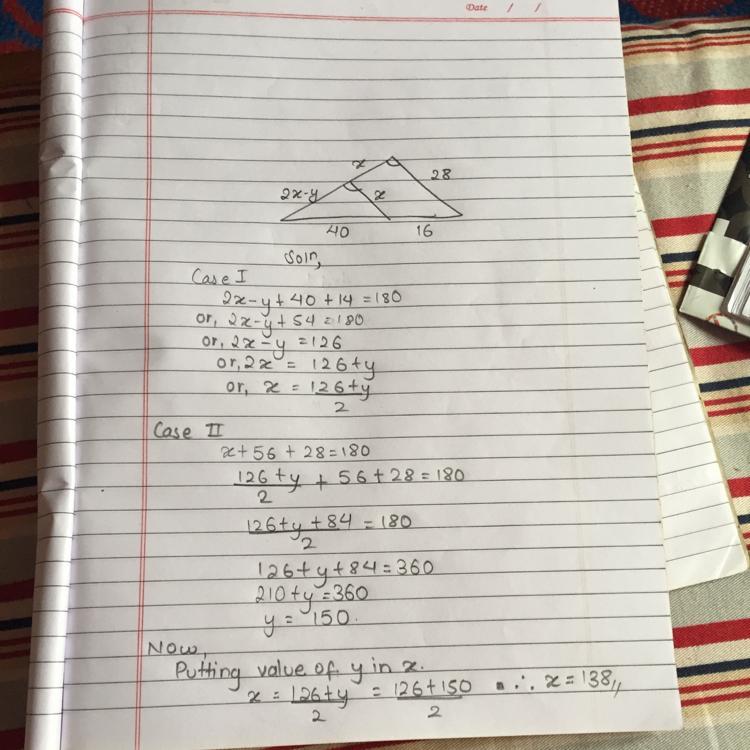 Date / /
x
28
2x-y
x
40
16
Soln,
Case I
2x-y+40+14=180
or, 2x-y+54=180
or, 2x-y=126
or, 2x = 126+y
or, x = 126+y/2
Case II
x+56+28=180
126+y/2 + 56+28=180
126+y+84/2 = 180
126+y+84=360
210+y=360
y = 150.
Now,
Putting value of y in x.
x = 126+y/2 = 126+150/2 ∴ x=138//